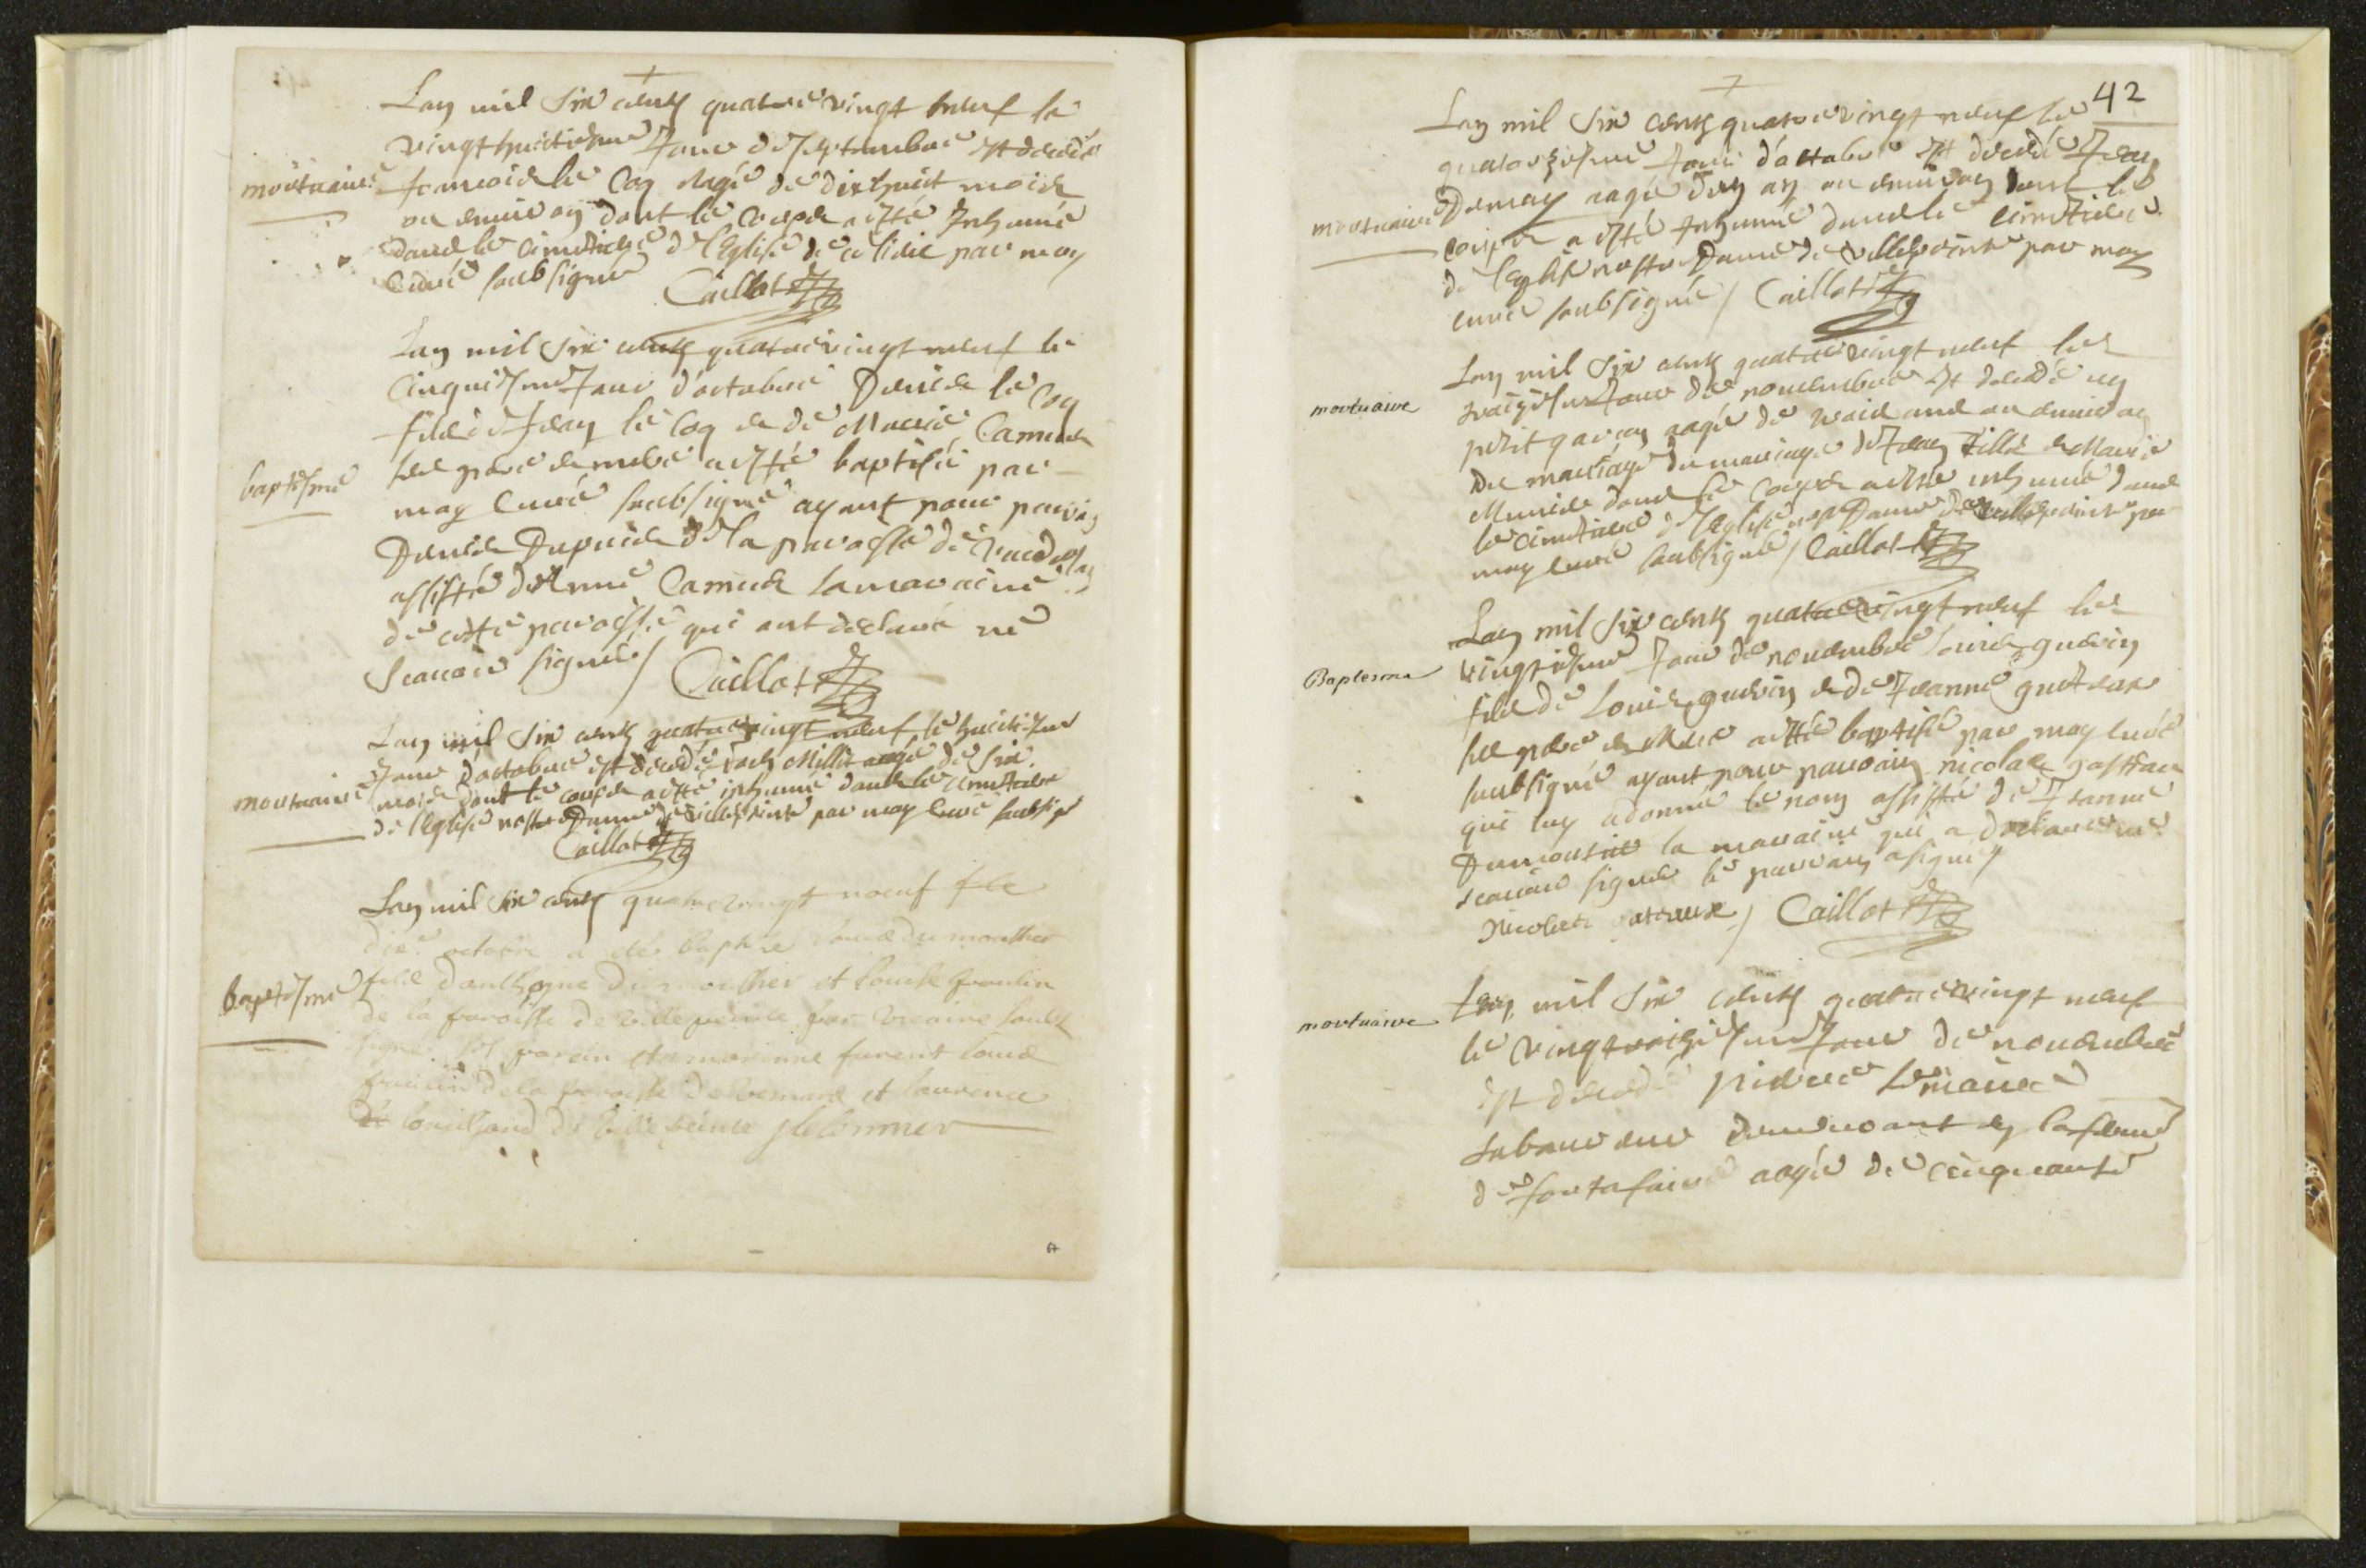 Lan mil six cents quatre vingt neuf le
vingt huictiesme Jour de septembre est decedé
mortuaire
francois le Coq aagé de dixhuit mois
ou environ dont le corps a esté Inhumé
dans le cimetiere de l'Eglise de ce lieu par moy
Curé soubsigné Caillot
Lan mil six cents quatre vingt neuf le
Cinquiesme Jour d'octobre Denis le Coq
fils de Jean le Coq et de Marie Camus
baptesme
ses pere et mere a esté baptisé par
moy Curé soubsigné ayant pour parain
Denis Dupuis de la paroisse de
assisté de Anne Camus la maraine
de cette paroisse qui ont declaré ne
scavoir signer / Caillot
Lan mil six cents quatre vingt neuf le huictiesme
Jour d'octobre est decedé Millet aagé de six
mortuaire
mois dont le corps a esté inhumé dans le cimetiere
de l'Eglise nostre Dame de villepeinte par moy Curé soubsigné
Caillot
Lan mil six cents quatre vingt noeuf le
dix octobre a été baptisé Louis du moustier
baptesme
fils d'anthoyne du moustier et Louise poulin
de la paroisse de villepeinte par vicaire soubs
signé. parain et la maraine furent Louis
poulin de la paroisse de et laurence
de villepeinte
42
Lan mil six cents quatre vingt neuf le
quatorziesme Jour d'octobre est decedé Jean
mortuaire
Demay aagé d'un an ou environ dont le
corps a esté Inhumé dans le cimetiere
de l'eglise nostre Dame de villepeinte par moy
curé soubsigné / Caillot
Lan mil six cents quatre vingt neuf le
mortuaire
traiziesme Jour de novembre est decedé un
petit garcon aagé de trois ans ou environ
du mariage de Jean et Marie
dont le corps a esté inhumé dans
le cimetiere de l'Eglise nostre Dame de villepeinte par
moy curé soubsigné / Caillot
Lan mil six cents quatre vingt neuf le
Baptesme
vingtiesme Jour de novembre Louis guerin
fils de Louis guerin et de Jeanne
ses pere et Mere a esté baptisé par moy curé
soubsigné ayant pour parain nicolas
qui luy a donné le nom assisté de Jeanne
Dumoustier la maraine qui a declaré ne
scavoir signer le parain a signé
Nicolas / Caillot
mortuaire
Lan mil six cents quatre vingt neuf
le vingt troiziesme Jour de novembre
est decedé pierre
laboureur demeurant en la ferme
de aagé de cinquante